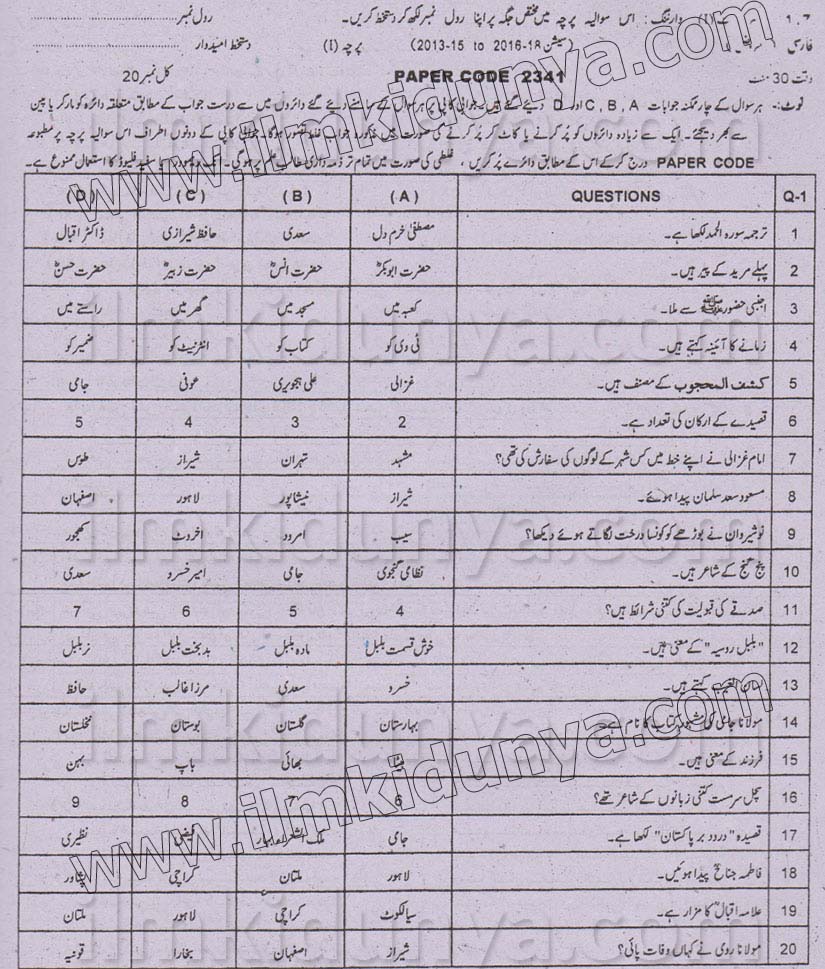 وارننگ: اس سوالیہ پرچہ میں مختص جگہ پر اپنا رول نمبر لکھ کر دستخط کریں۔ رول نمبر
(سیشن 18-2016 to 15-2013) پرچہ (I) دستخط امیدوار
وقت 30 منٹ PAPER CODE 2341 کل نمبر 20
نوٹ:- ہر سوال کے چار ممکنہ جوابات A ، B ، C اور D دیئے گئے ہیں۔ جوابی کاپی پر ہر سوال کے سامنے دیئے گئے دائروں میں سے درست جواب کے مطابق متعلقہ دائرہ کو مارکر یا پین
سے بھر دیجئے۔ ایک سے زیادہ دائروں کو پُر کرنے یا کاٹ کر پُر کرنے کی صورت میں مذکورہ جواب غلط تصور ہوگا۔ جوابی کاپی کے دونوں اطراف اس سوالیہ پرچہ پر مطبوعہ
PAPER CODE درج کر کے اس کے مطابق دائرے پُر کریں ، غلطی کی صورت میں تمام تر ذمہ داری طالب علم پر ہوگی۔ استعمال ممنوع ہے۔
Q-1 QUESTIONS (A) (B) (C) (D)
1 ترجمہ سورہ الحمد لکھا ہے۔ مصطفیٰ خرم دل سعدی حافظ شیرازی ڈاکٹر اقبال
2 پہلے مرید کے پیر ہیں۔ حضرت ابوبکرؓ حضرت انسؓ حضرت زبیرؓ حضرت حسنؓ
3 اجنبی حضورﷺ سے ملا۔ کعبہ میں مسجد میں گھر میں راستے میں
4 زمانے کا آئینہ کہتے ہیں۔ ٹی وی کو کتاب کو انٹرنیٹ کو ضمیر کو
5 کشف المحجوب کے مصنف ہیں۔ غزالی علی ہجویری عوفی جامی
6 قصیدے کے ارکان کی تعداد ہے۔ 2 3 4 5
7 امام غزالی نے اپنے خط میں کس شہر کے لوگوں کی سفارش کی تھی؟ مشہد تہران شیراز طوس
8 مسعود سعد سلمان پیدا ہوئے۔ شیراز نیشاپور لاہور اصفہان
9 نوشیروان نے بوڑھے کو کونسا درخت لگاتے ہوئے دیکھا؟ سیب امرود اخروٹ کھجور
10 پنج گنج کے شاعر ہیں۔ نظامی گنجوی جامی امیر خسرو سعدی
11 صدقے کی قبولیت کی کتنی شرائط ہیں؟ 4 5 6 7
12 "بلبل روسیہ" کے معنی ہیں۔ خوش قسمت بلبل مادہ بلبل بدبخت بلبل نر بلبل
13 لسان الغیب کہتے ہیں۔ خسرو سعدی مرزا غالب حافظ
14 مولانا جامی کی مشہور کتاب کا نام ہے۔ بہارستان گلستان بوستان نخلستان
15 فرزند کے معنی ہیں۔ بیٹا بھائی باپ بہن
16 سچل سرمست کتنی زبانوں کے شاعر تھے؟ 6 7 8 9
17 قصیدہ "درود بر پاکستان" لکھا ہے۔ جامی ملک الشعراء بہار فیضی نظیری
18 فاطمہ جناحؒ پیدا ہوئیں۔ لاہور ملتان کراچی پشاور
19 علامہ اقبالؒ کا مزار ہے۔ سیالکوٹ کراچی لاہور ملتان
20 مولانا رومی نے کہاں وفات پائی؟ شیراز اصفہان بخارا قونیہ
www.ilmkidunya.com
www.ilmkidunya.com
ilmkidunya.com
ilmkidunya.com
ilmkidunya.com
ilmkidunya.com
ilmkidunya.com